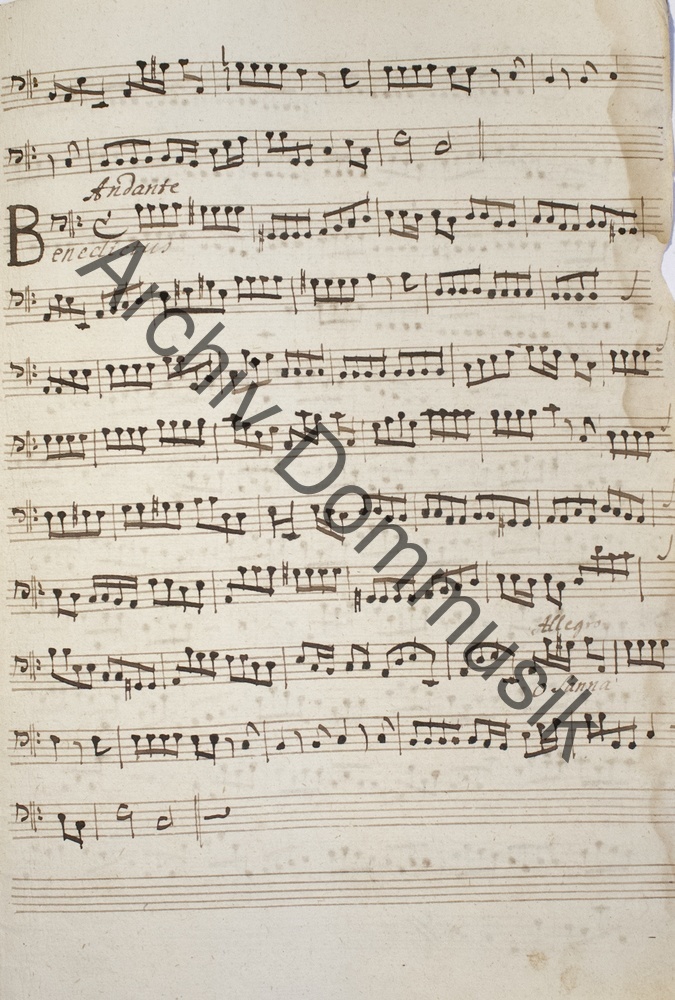 Andante
Benedictus
Allegro
O Sanna
Archiv Dommusik